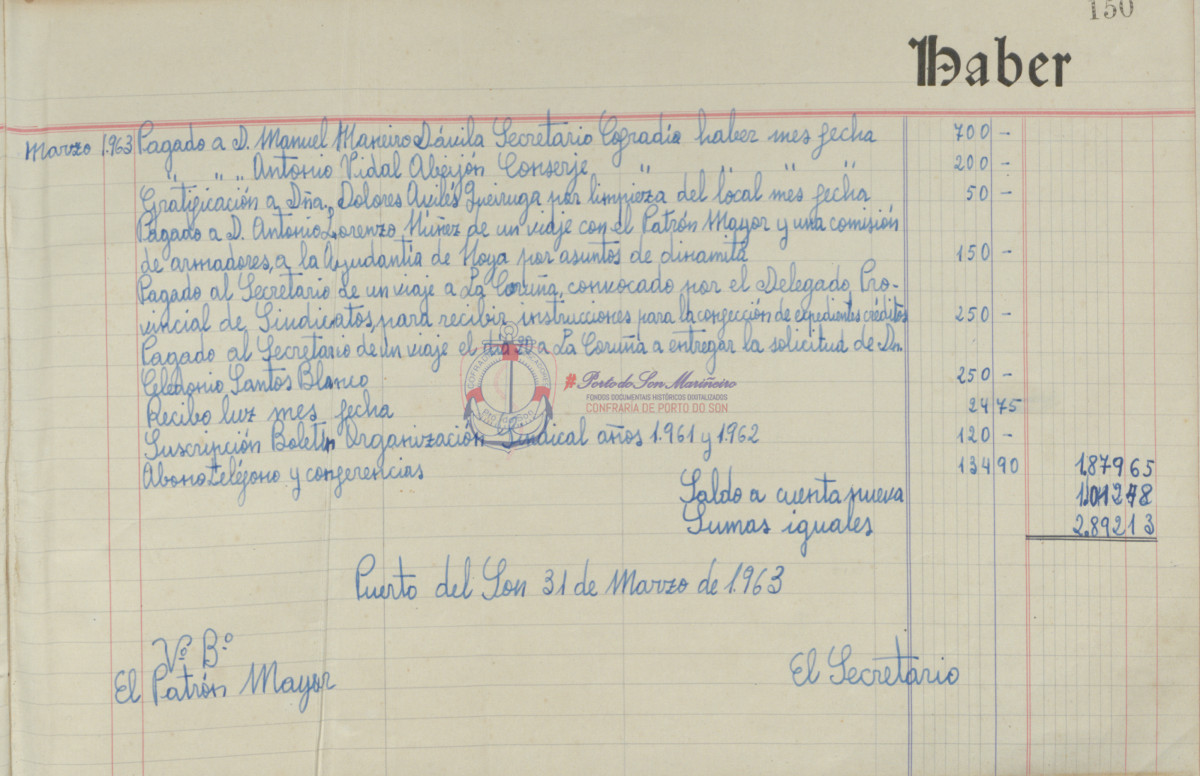 150
Haber
Marzo 1.963 Pagado a D. Manuel Maneiro Dávila Secretario Cofradía haber mes fecha 700 -
" " " Antonio Vidal Abeijón Conserje " " " 200 -
Gratificación a Dña. Dolores Avilés Queiruga por limpieza del local mes fecha 50 -
Pagado a D. Antonio Lorenzo Núñez de un viaje con el Patrón Mayor y una comisión
de armadores, a la Ayudantía de Noya por asuntos de dinamita 150 -
Pagado al Secretario de un viaje a La Coruña, convocado por el Delegado Pro-
vincial de Sindicatos, para recibir instrucciones para la confección de expedientes créditos 250 -
Pagado al Secretario de un viaje el día 20 a La Coruña a entregar la solicitud de Dn.
Celedonio Santos Blanco 250 -
Recibo luz mes fecha 24 75
Suscripción Boletín Organización Sindical años 1.961 y 1.962 120 -
Abono teléfono y conferencias 134 90 1.879 65
Saldo a cuenta nueva 1.012 48
Sumas iguales 2.892 13
#Porto do Son Mariñeiro
FONDOS DOCUMENTAIS HISTÓRICOS DIXITALIZADOS
CONFRARÍA DE PORTO DO SON
Puerto del Son 31 de Marzo de 1.963
Vº. Bº.
El Patrón Mayor
El Secretario